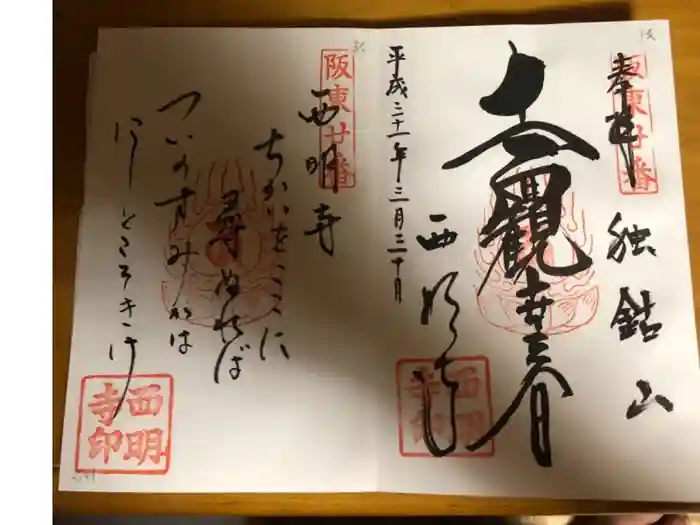 阪東廿番
奉拝
独鈷山
觀
西明寺
平成三十一年三月三十日
西明寺印
阪東廿番
西明寺
ちかいをここに
尋ぬれば
ついのすみかは
にしとこそきけ
西明寺印